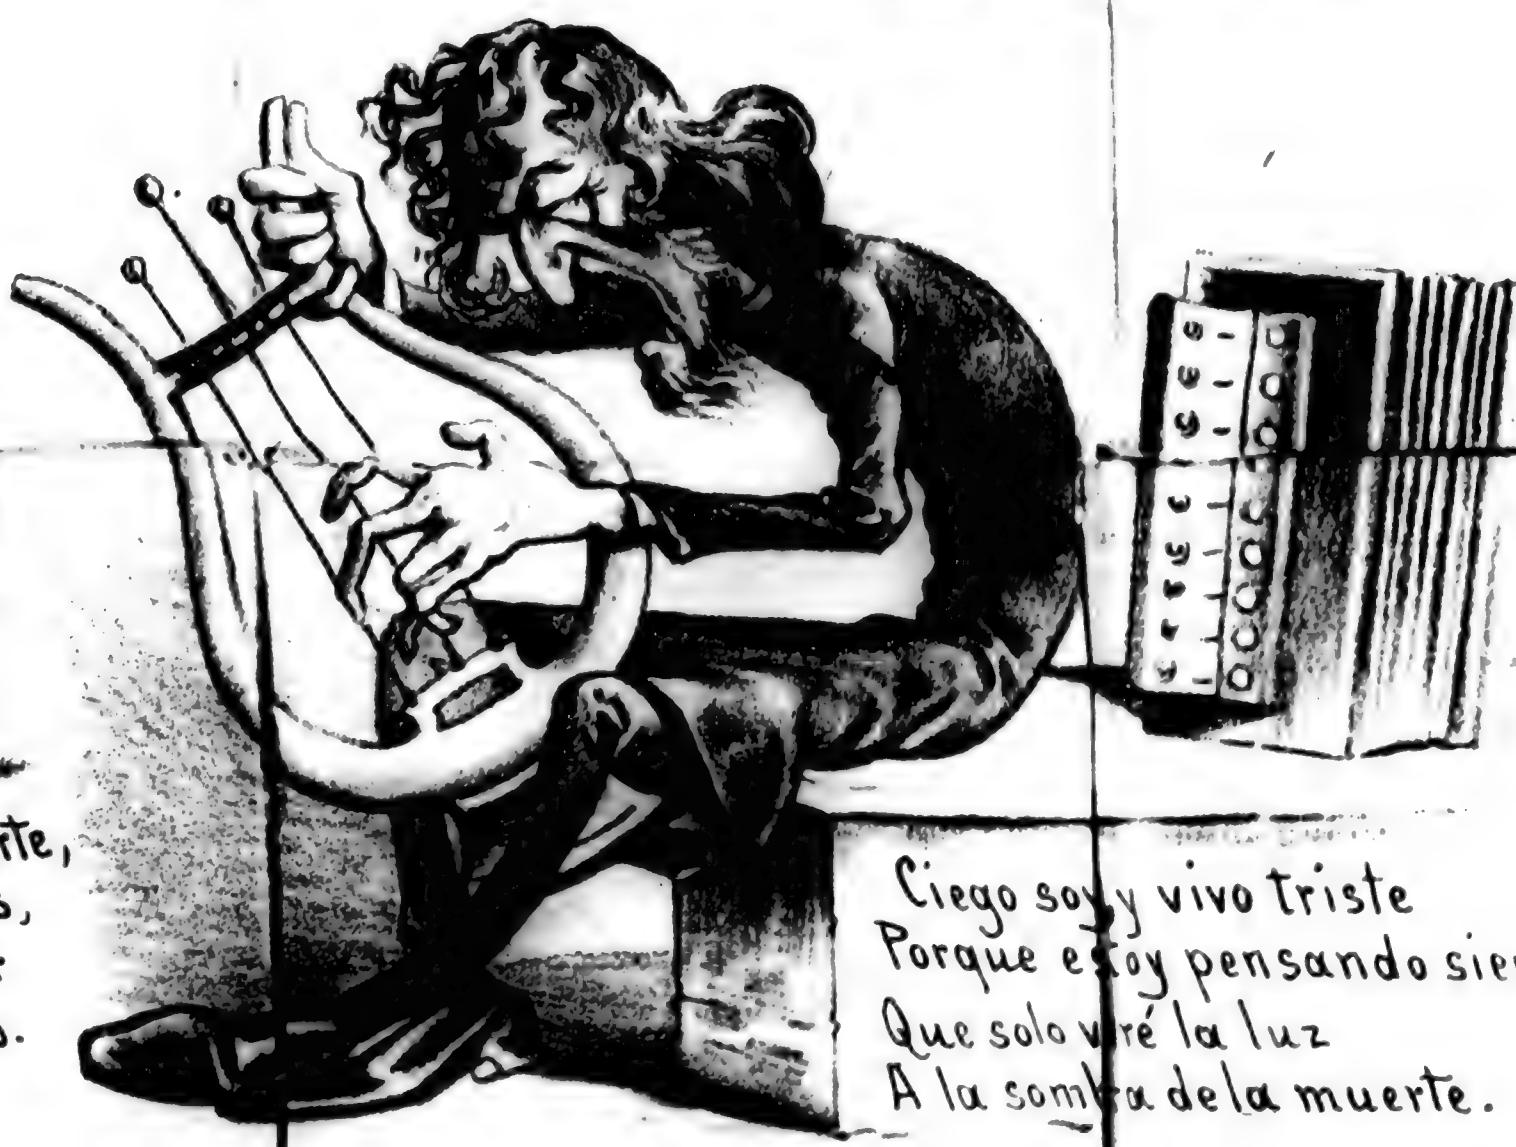 rte,
s,
s.
Ciego soy y vivo triste
Porque estoy pensando sie
Que solo veré la luz
A la sombra de la muerte.